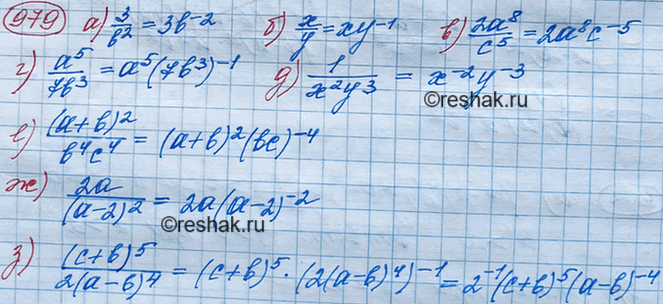 979 а) 3/b² = 3b⁻² б) x/y = xy⁻¹ в) 2a⁸/c⁵ = 2a⁸c⁻⁵
г) a⁵/7b³ = a⁵(7b³)⁻¹ д) 1/x²y³ = x⁻²y⁻³
©reshak.ru
е) (a+b)²/b⁴c⁴ = (a+b)²(bc)⁻⁴
ж) 2a/(a-2)² = 2a(a-2)⁻²
©reshak.ru
з) (c+b)⁵/2(a-b)⁴ = (c+b)⁵ · (2(a-b)⁴)⁻¹ = 2⁻¹(c+b)⁵(a-b)⁻⁴